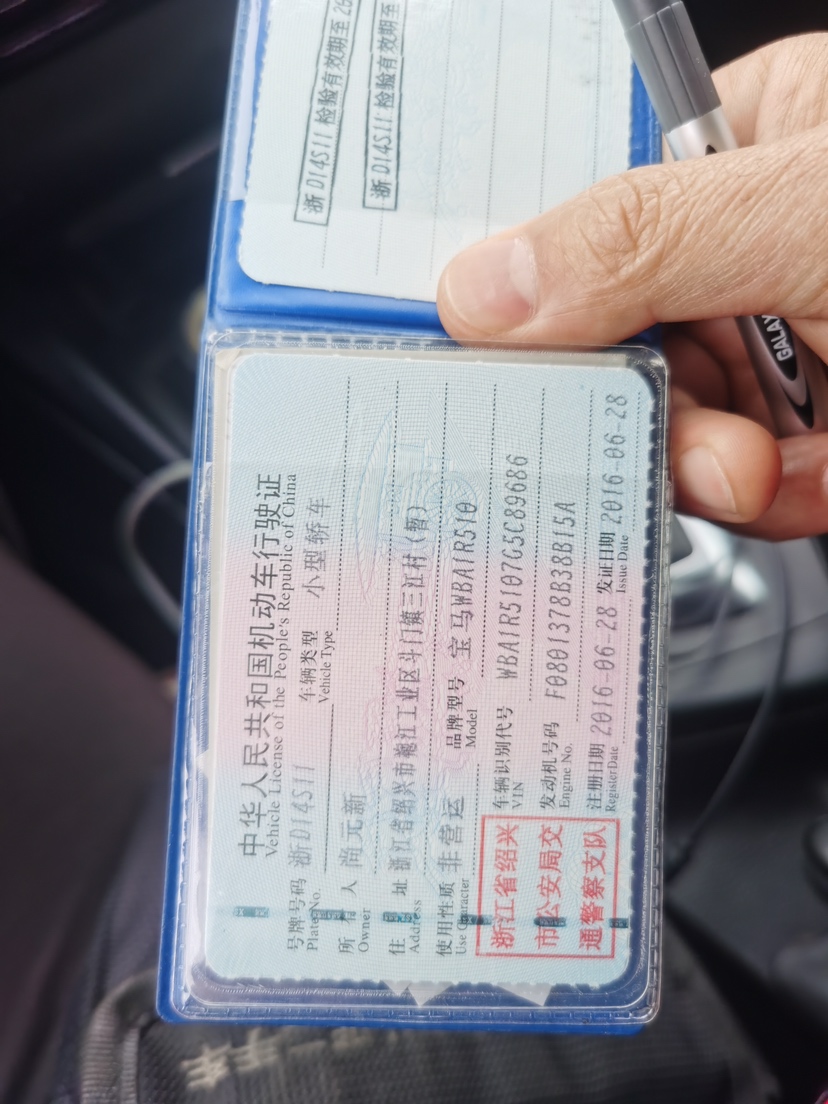 浙D14S11 检验有效期至26
浙D14S11 检验有效期至
中华人民共和国机动车行驶证
Vehicle License of the People's Republic of China
号牌号码 浙D14S11 车辆类型 小型轿车
Plate No. Vehicle Type
所有人 尚元新
Owner
住址 浙江省绍兴市袍江工业区斗门镇三江村(暂)
Address
使用性质 非营运 品牌型号 宝马WBA1R510
Use Character Model
浙江省绍兴
市公安局交
通警察支队
车辆识别代号 WBA1R5107G5C89686
VIN
发动机号码 F0801378B38B15A
Engine No.
注册日期 2016-06-28 发证日期 2016-06-28
Register Date Issue Date
GALAX